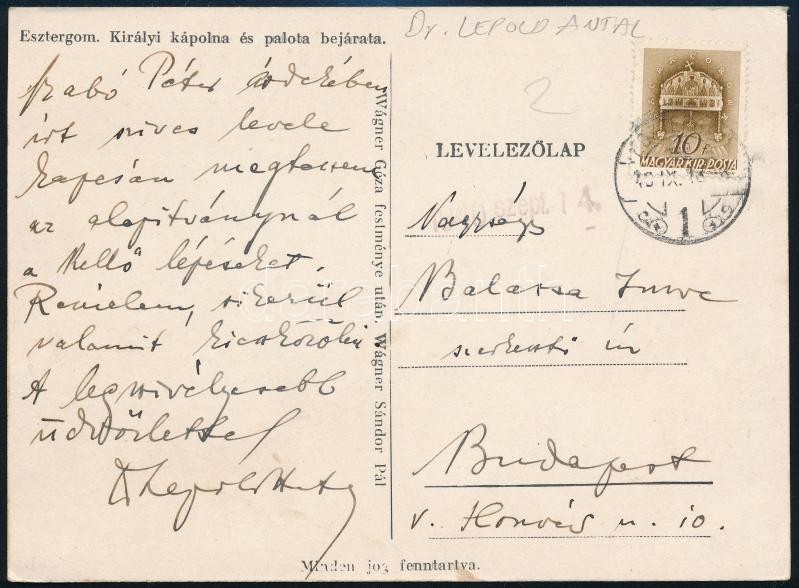 Esztergom. Királyi kápolna és palota bejárata.
Szabó Péter érdekében
írt szives levele
kapcsán megteszem
az alapítványnál
a kellő lépéseket.
Remélem, sikerül
valamit kieszközölni
A legszivélyesebb
üdvözlettel
Dr Lepold Antal
Wágner Géza festménye után. Wágner Sándor Pál
Minden jog fenntartva.
Dr. LEPOLD ANTAL
2
MAGYAR KIR. POSTA
10 f
1
LEVELEZŐLAP
szept. 14.
Nagyságos
Balassa Imre
szerkesztő úr
Budapest
V. Honvéd u. 10.
darabanth